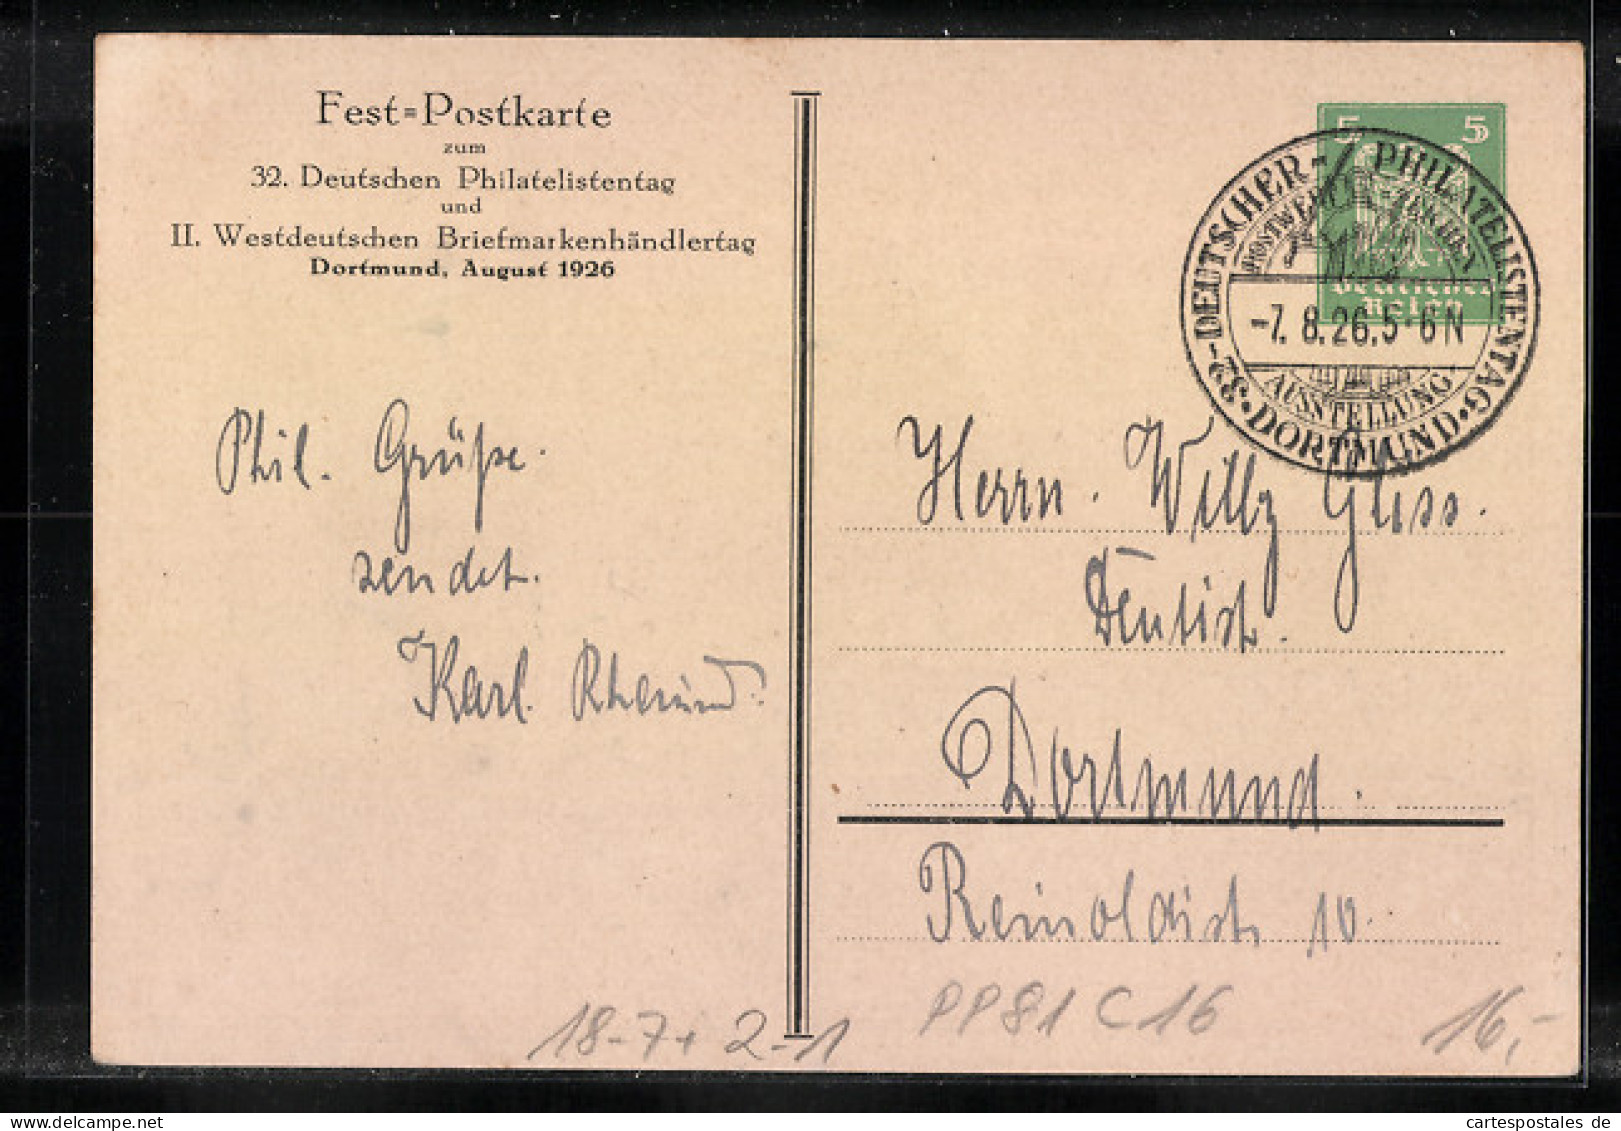 Fest=Postkarte
zum
32. Deutschen Philatelistentag
und
II. Westdeutschen Briefmarkenhändlertag
Dortmund, August 1926
5 5
Deutsches
Reich
32. DEUTSCHER PHILATELISTENTAG
POSTWERTZEICHEN
-7.8.26.5-6N
AUSSTELLUNG
• DORTMUND •
Phil. Grüße.
sendet.
Karl.
Herrn. Willy
Dentist.
Dortmund.
Reinoldistr. 10.
18-7+2-1
PP81 C16
16,-
cartespostales de